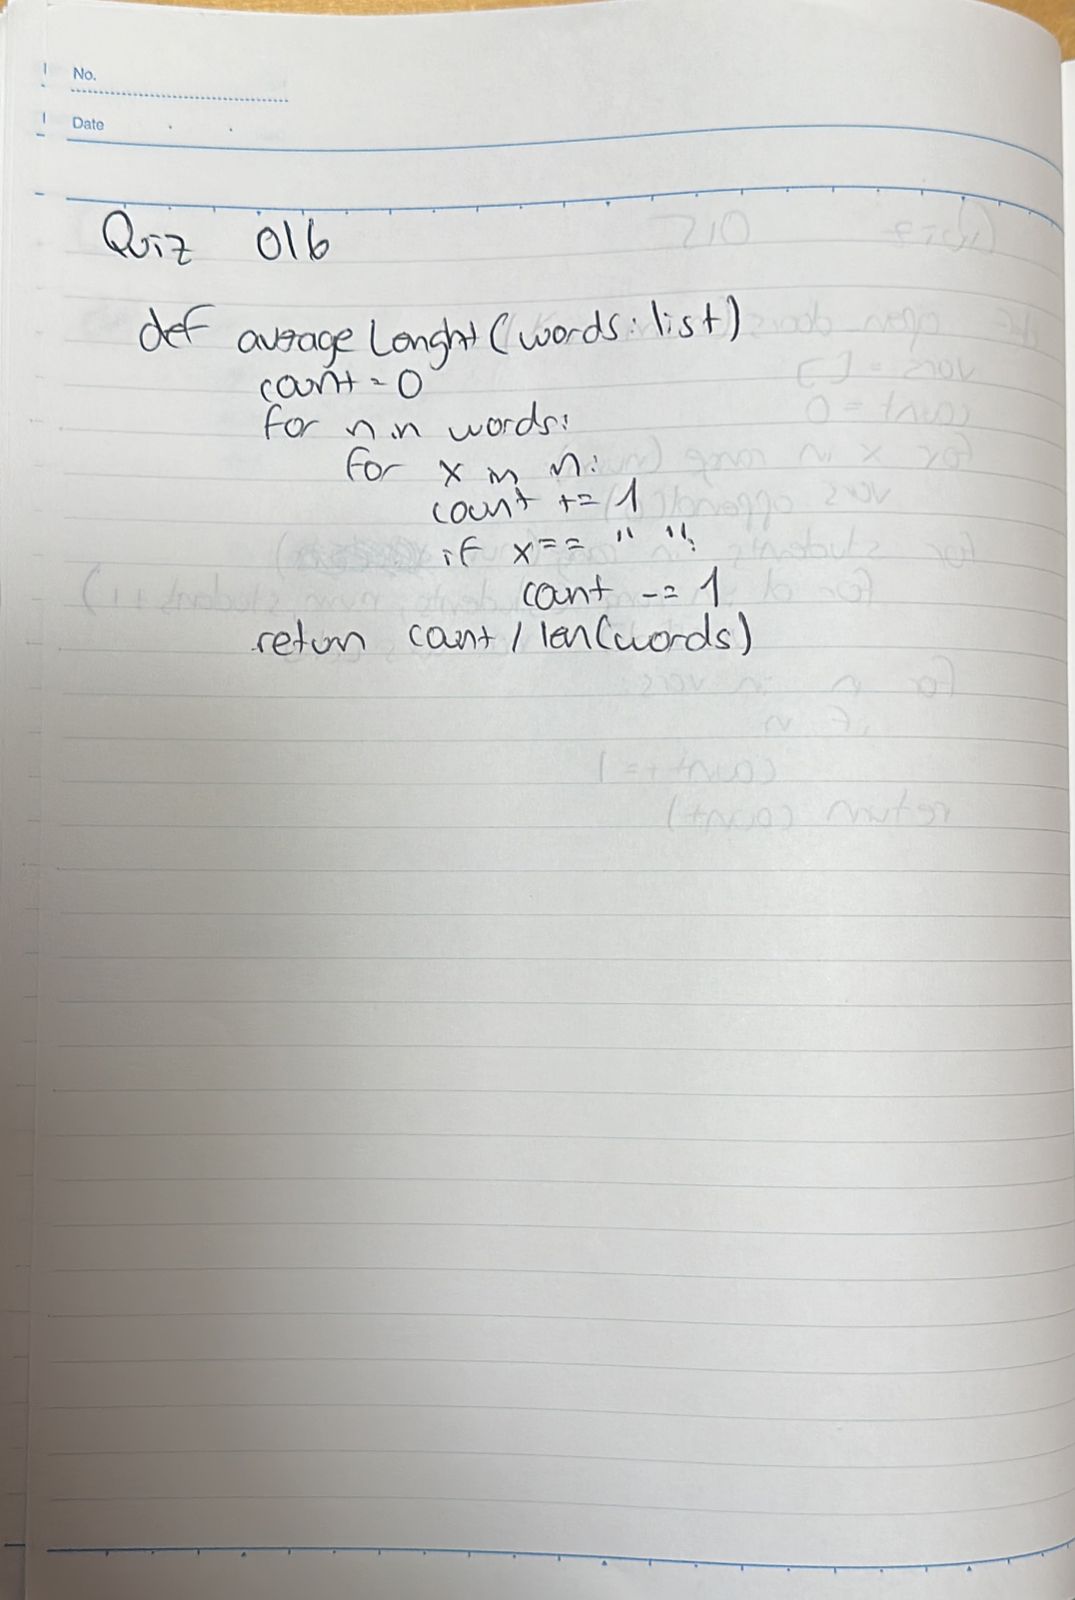 No.
Date
Quiz 016
def average Lenght (words: list)
count = 0
for n in words:
for x in n:
count += 1
if x == " ":
count -= 1
return count / len(words)